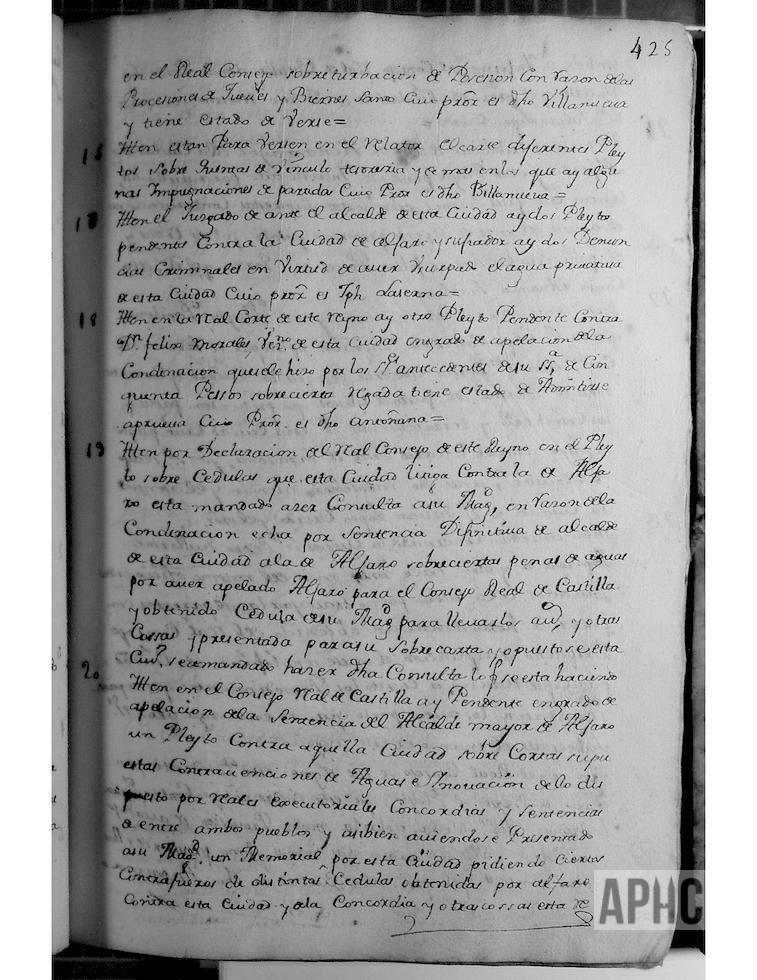 425
en el Real Consejo sobre turbacion de Posesion con razon de las
Procesiones de Jueves y Biernes Santo Cuio pror es dho Villanueva
y tiene estado de Verse=
15 Itten estan Para Versen en el Relator elcarte diferentes Pley
tos sobre Quentas de Vinculo tesoreria y demas en los que ay algu
nas Impugnaciones de partidas Cuio Pror es dho Villanueva=
Itten el Juzgado de ante el alcalde de esta Ciudad ay dos Pleytos
pendentes Contra la Ciudad de alfaro y su ay dos Denun
cias Criminales en Virtud de aver Vsurpado el agua privativa
de esta Ciudad Cuio pror es Jph Laserna=
18 Itten en la Rl Corte de este Reyno ay otro Pleyto Pendente Contra
Dn. felix Morales, Veno. de esta Ciudad en grado de apelacion de la
Condenacion que se le hizo por los SSes antecedentes de su SSa, de Cin
quenta Pessos sobre cierta Regada tiene estado de Admitirse
aprueva Cuio Pror. es dho Antoñana=
19 Itten por Declaracion del Real Consejo de este Reyno en el Pley
to sobre Cedulas que esta Ciudad litiga Contra la de Alfa
ro esta mandado azer Consulta a su Magd, en razon de la
Condenacion echa por Sentencia Difinitiva de alcalde
de esta Ciudad a la de Alfaro sobre ciertas penas de aguas
por aver apelado Alfaro para el Consejo Real de Castilla
y obtenido Cedula de su Magd para llevar los au, y otras
Cossas presentada para su Sobrecarta y opuestose esta
Ciud, se a mandado hazer dha Consulta lo q se esta haciendo
20 Itten en el Consejo Rl de Castilla ay Pendente en grado de
apelacion de la Sentencia del Alcalde mayor de Alfaro
un Pleyto Contra aquella Ciudad sobre Cortas supu
estas Contravenciones de Aguas e Inovación de lo dis
puesto por Rales executoriales Concordias y Sentencias
de entre ambos pueblos y asibien aviendose Presentado
a su Magd. un Memorial por esta Ciudad pidiendo Ciertos
Contrafueros de distintas Cedulas obtenidas por alfaro
Contra esta Ciudad y de la Concordia y otras cossas esta re
APHC